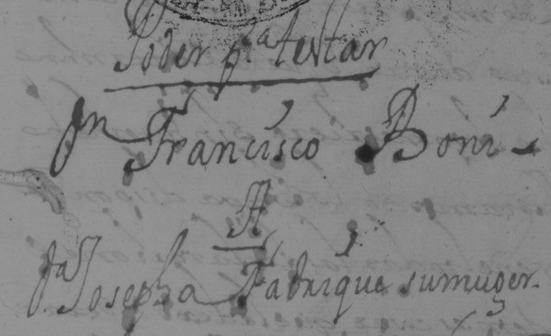 Poder p.ª testar
Dn Francisco Boni
A
D.ª Josepha Fadrique su muger.